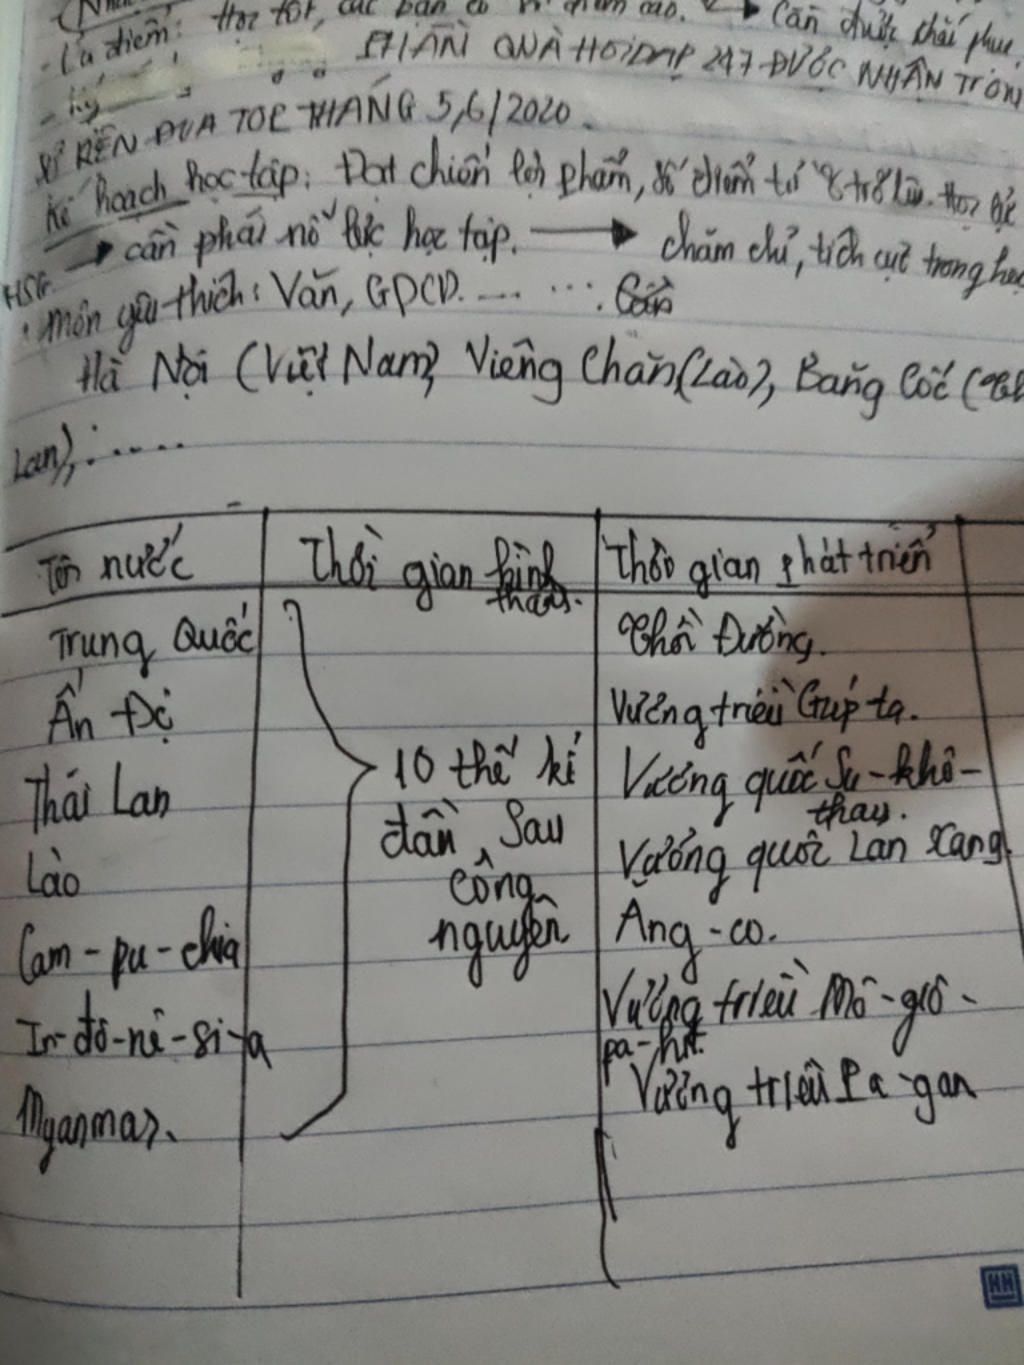 - Ưu điểm: Học tốt, các bạn có
Cần được
PHẦN QUÀ HOIDAP 247 ĐƯỢC NHẬN TRONG
- Ký
SỰ KIỆN ĐUA TOP THÁNG 5,6/2020.
Kế hoạch học tập: Đạt chiến lợi phẩm, số điểm từ 8 trở lên.
→ cần phải nỗ lực học tập. → chăm chỉ, tích cực trong học
HSG.
môn yêu thích: Văn, GDCD. ... ...
Hà Nội (Việt Nam), Viêng Chăn (Lào), Băng Cốc (Thái
Lan), .....
Tên nước Thời gian hình thành. Thời gian phát triển
Trung Quốc Thời Đường.
Ấn Độ Vương triều Gúp ta.
Thái Lan 10 thế kỉ Vương quốc Su-khô-
thay.
đầu sau
Lào công Vương quốc Lan Xang
Cam-pu-chia nguyên Ăng-co.
In-đô-nê-si-a Vương triều Mô-giô-
pa-hit.
Myanmar. Vương triều Pa-gan
HH